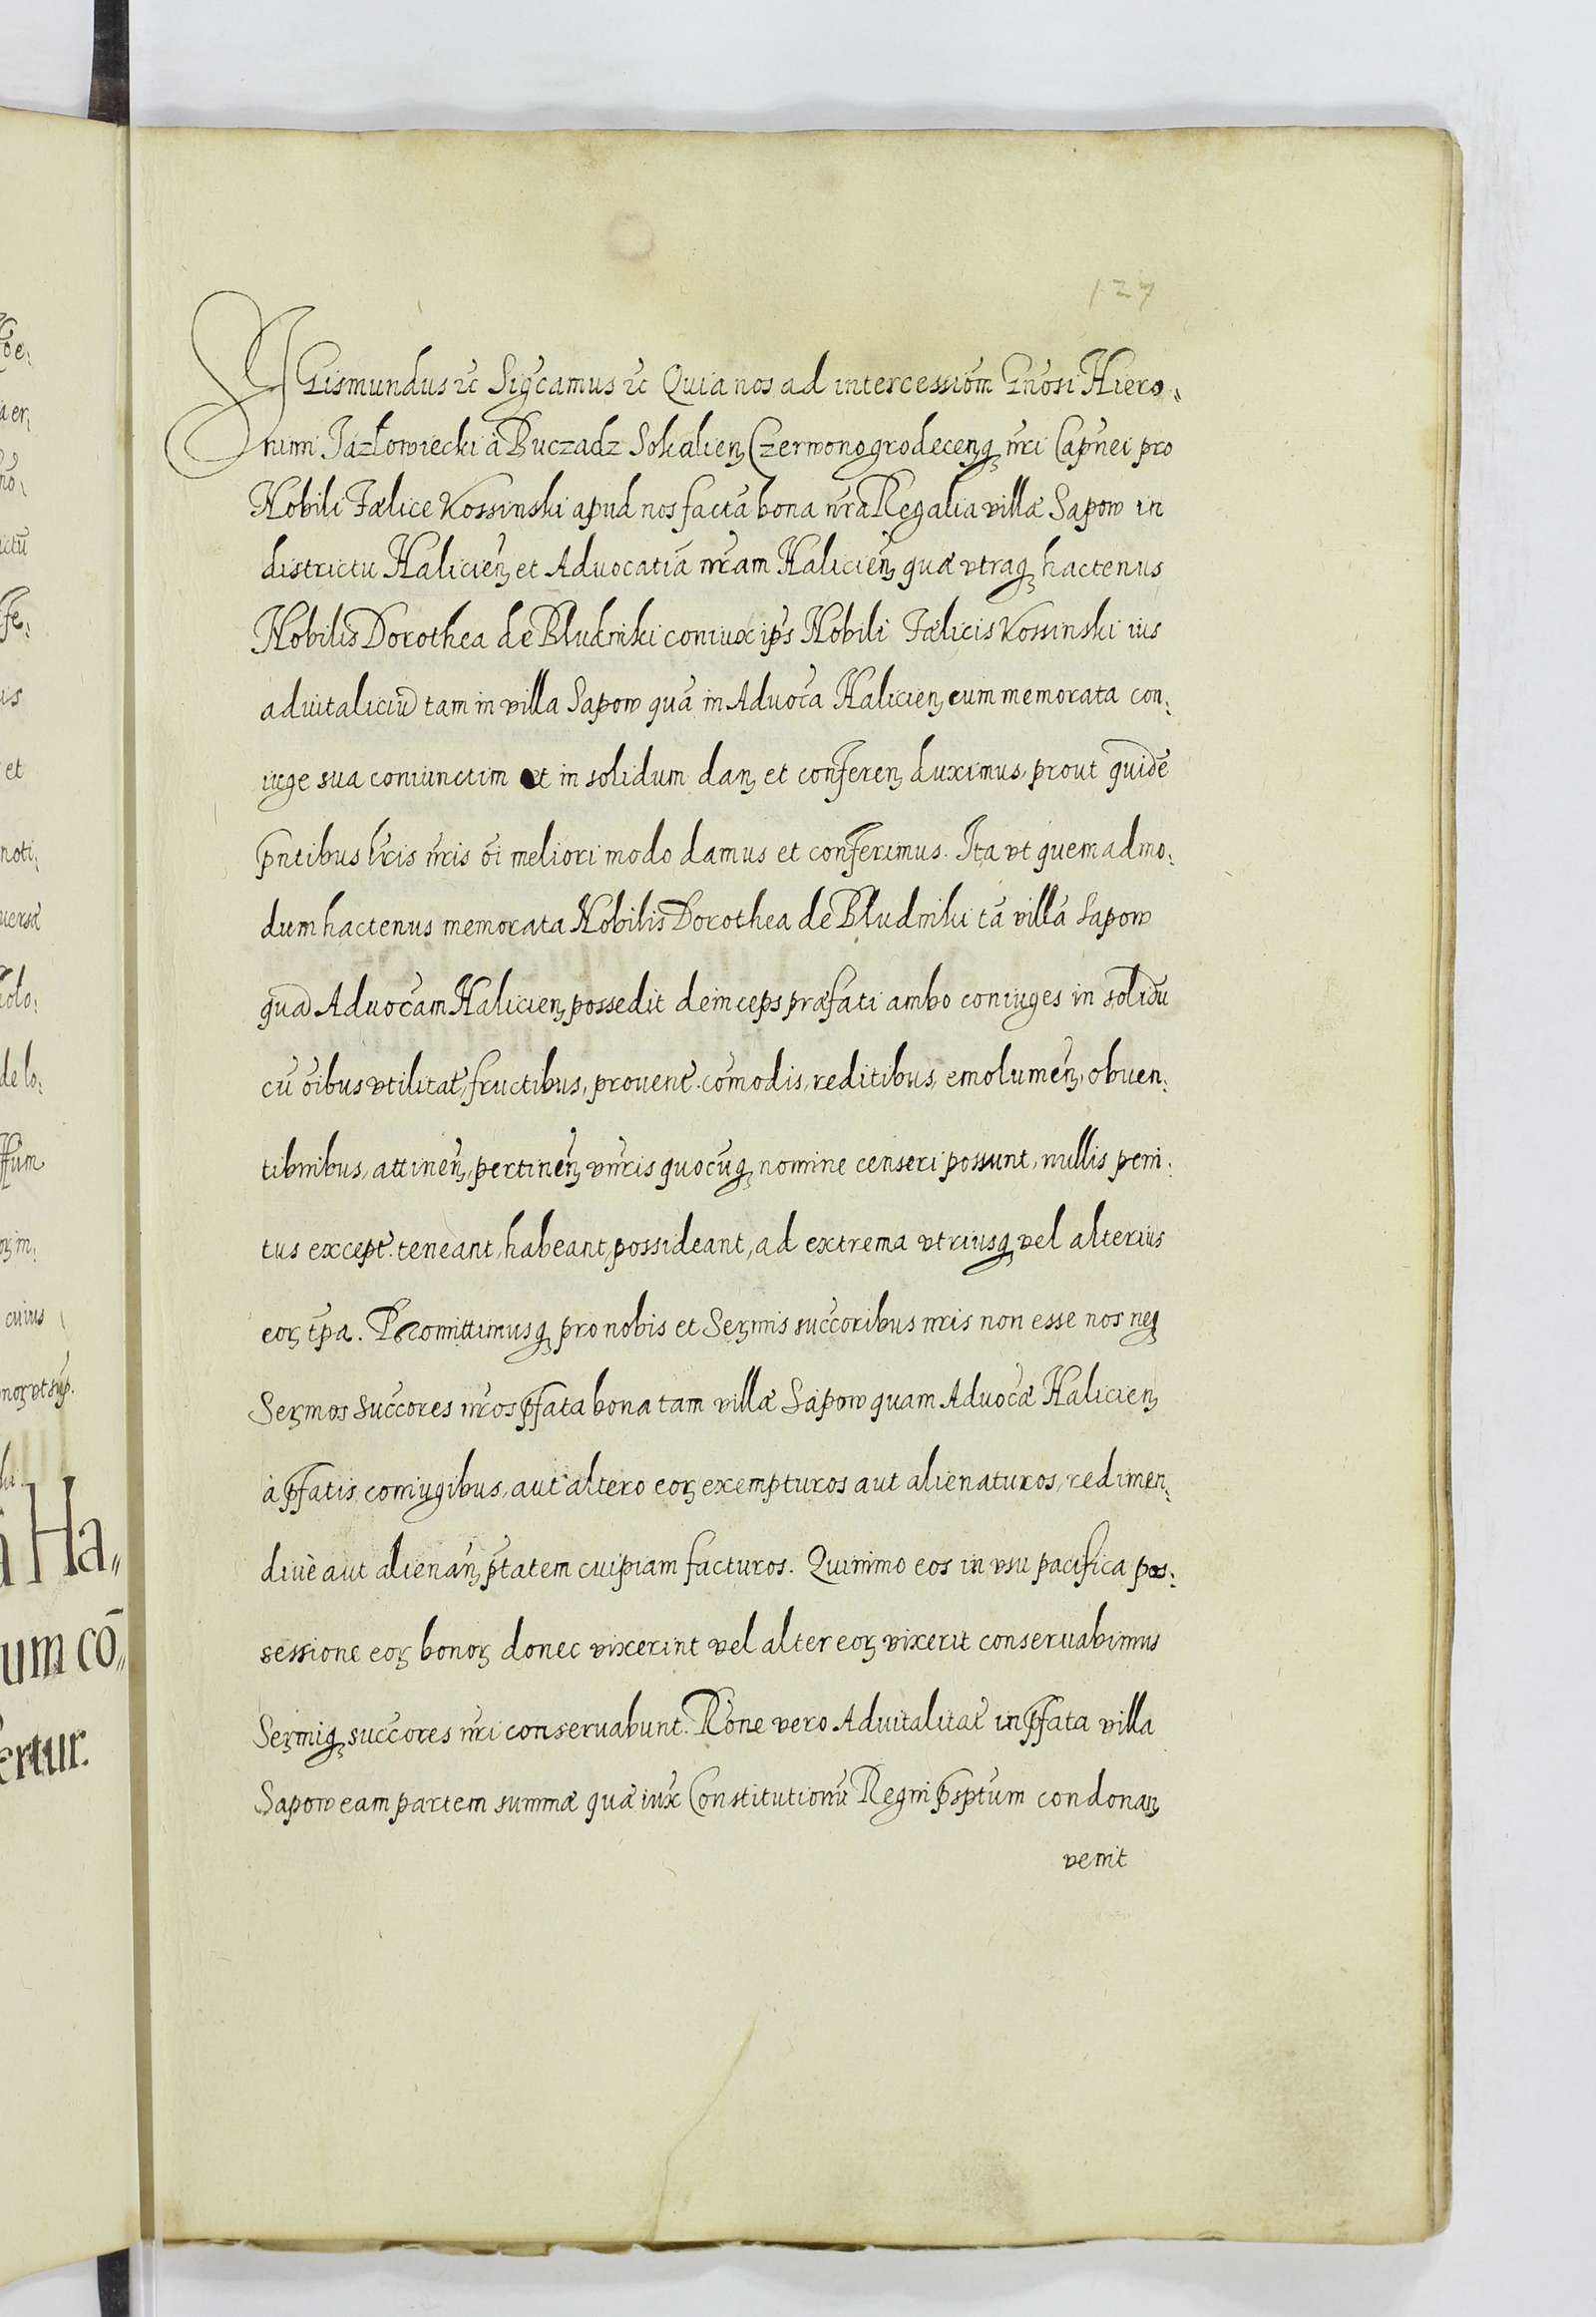 127
SIGismundus etc Sigcamus etc Quia nos ad intercessiom Gnosi Hiero„
nimi Jazłowiecki à Buczadz Sokalien Czerwonogrodecenq nri Capnei pro
Nobili Fælice Kossinski apud nos factā bona nra Regalia villæ Sapow in
districtu Halicien et Advocatiā nram Halicien quæ vtraq hactenus
Nobilis Dorothea de Bludniki coniux ips Nobili Fælicis Kossinski ius
aduitaliciū tam in villa Sapow quā in Advoca Halicien cum memorata con:
iuge sua coniunctim et in solidum dan et conferen duximus, prout quidē
pntibus lris nris oi meliori modo damus et conferimus. Ita vt quemadmo:
dum hactenus memorata Nobilis Dorothea de Bludniki tā villā Sapow
quā Advocam Halicien possedit deinceps præfati ambo coniuges in solidū
cū oibus vtilitat, fructibus, prouent. comodis, reditibus, emolumen, obuen:
tibnibus, attinen, pertinen vnris quocūq nomine censeri possunt, nullis peni:
tus except. teneant, habeant, possideant, ad extrema vtriusq vel alterius
eor tpa. Promittimusq pro nobis et Sermis succoribus nris non esse nos neq
Sermos Succores nros pfata bona tam villæ Sapow quam Advocæ Halicien
à pfatis coniugibus, aut altero eor exempturos aut alienaturos, redimen:
diuè aut alienan ptatem cuipiam facturos. Quinimo eos in vsu pacifica pos:
sessione eor bonor donec vixerint vel alter eor vixerit conseruabimus
Sermiq succores nri conseruabunt. Rōne vero Aduitalitat in pfata villa
Sapow eam partem summæ quæ iux Constitutionū Regni psptum condonan
venit